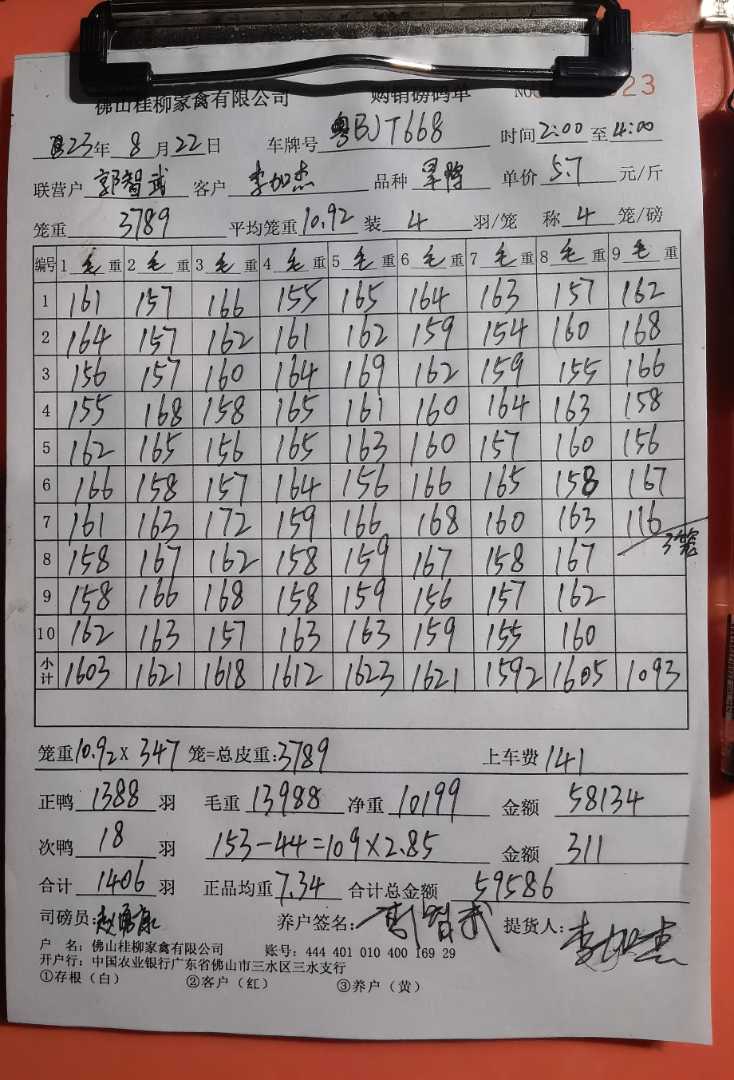 佛山桂柳家禽有限公司 购销磅码单 NO 23
23年 8 月 22 日 车牌号 粤BJT668 时间 2:00 至 4:00
联营户 郭智武 客户 李加杰 品种 单价 5.7 元/斤
笼重 3789 平均笼重 10.92 装 4 羽/笼 称 4 笼/磅
编号 1 毛 重 2 毛 重 3 毛 重 4 毛 重 5 毛 重 6 毛 重 7 毛 重 8 毛 重 9 毛 重
1 161 157 166 155 165 164 163 157 162
2 164 157 162 161 162 159 154 160 168
3 156 157 160 164 169 162 159 155 166
4 155 168 158 165 161 160 164 163 158
5 162 165 156 165 163 160 157 160 156
6 166 158 157 164 156 166 165 158 167
7 161 163 172 159 166 168 160 163 116
8 158 167 162 158 159 167 158 167 3笼
9 158 166 168 158 159 156 157 162
10 162 163 157 163 163 159 155 160
小计 1603 1621 1618 1612 1623 1621 1592 1605 1093
笼重 10.92 X 347 笼=总皮重: 3789 上车费 141
正鸭 1388 羽 毛重 13988 净重 10199 金额 58134
次鸭 18 羽 153-44=109×2.85 金额 311
合计 1406 羽 正品均重 7.34 合计总金额 59586
司磅员: 养户签名: 郭智武 提货人: 李加杰
户 名: 佛山桂柳家禽有限公司 账号: 444 401 010 400 169 29
开户行: 中国农业银行广东省佛山市三水区三水支行
①存根(白) ②客户(红) ③养户(黄)